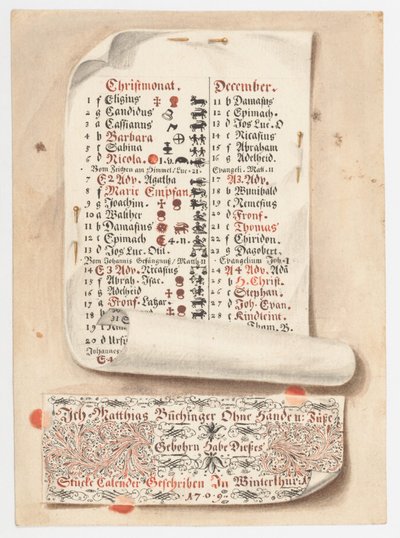 Christmonat.
1 f Eligius
2 g Candidus
3 a Cassianus
4 b Barbara
5 c Sabina
6 d Nicola. 1. v.
Vom Zeichen am Himmel/Luc. 21.
7 E 2 Adv. Agatha
8 f Marie Empfan
9 g Joachim.
10 a Walther
11 b Damasius
12 c Epimach 4. n.
13 d Jos Luc. Ott.
Vom Johannis Gefängnuß/Matth. 11
14 E 3 Adv. Nicasius
15 f Abrah. Isac.
16 g Adelheid
17 a Fronf. Lazar.
18 b
19 c
20 d Ursi
Johannes
E 4
31
December.
11 b Damasius
12 c Epimach.
13 d Jos Luc. O
14 e Nicasius
15 f Abraham
16 g Adelheid.
Evangeli. Mat. 11
17 A 3. Adv.
18 b Wunibald
19 c Nemesius
20 d Fronf.
21 e Thomas
22 f Chiridon.
23 g Dagobert.
Evangelium Joh. 1
24 A 4 Adv. Ada
25 b H. Christ.
26 c Stephan.
27 d Joh. Evan.
28 e Kindleint.
Thom. B.
Ich Matthias Büchinger Ohne Hände u: Füße
Gebohrn Habe Dießes
Stücke Calender Geschrieben In Winterthur.
1709.